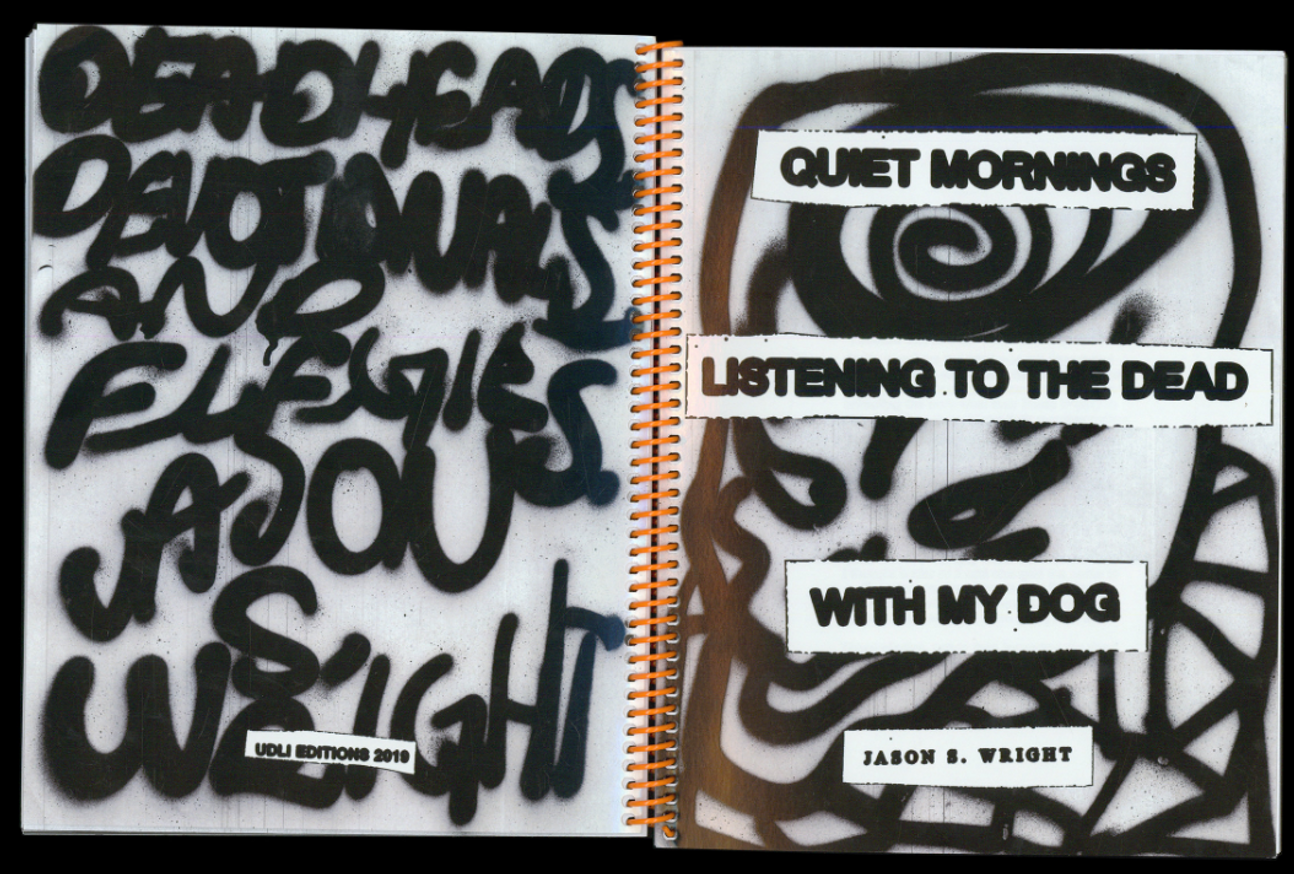 DEADHEADS
DEVOTIONALS
AND
ELEGIES
JASON
S
WRIGHT
UDLI EDITIONS 2019
QUIET MORNINGS
LISTENING TO THE DEAD
WITH MY DOG
JASON S. WRIGHT